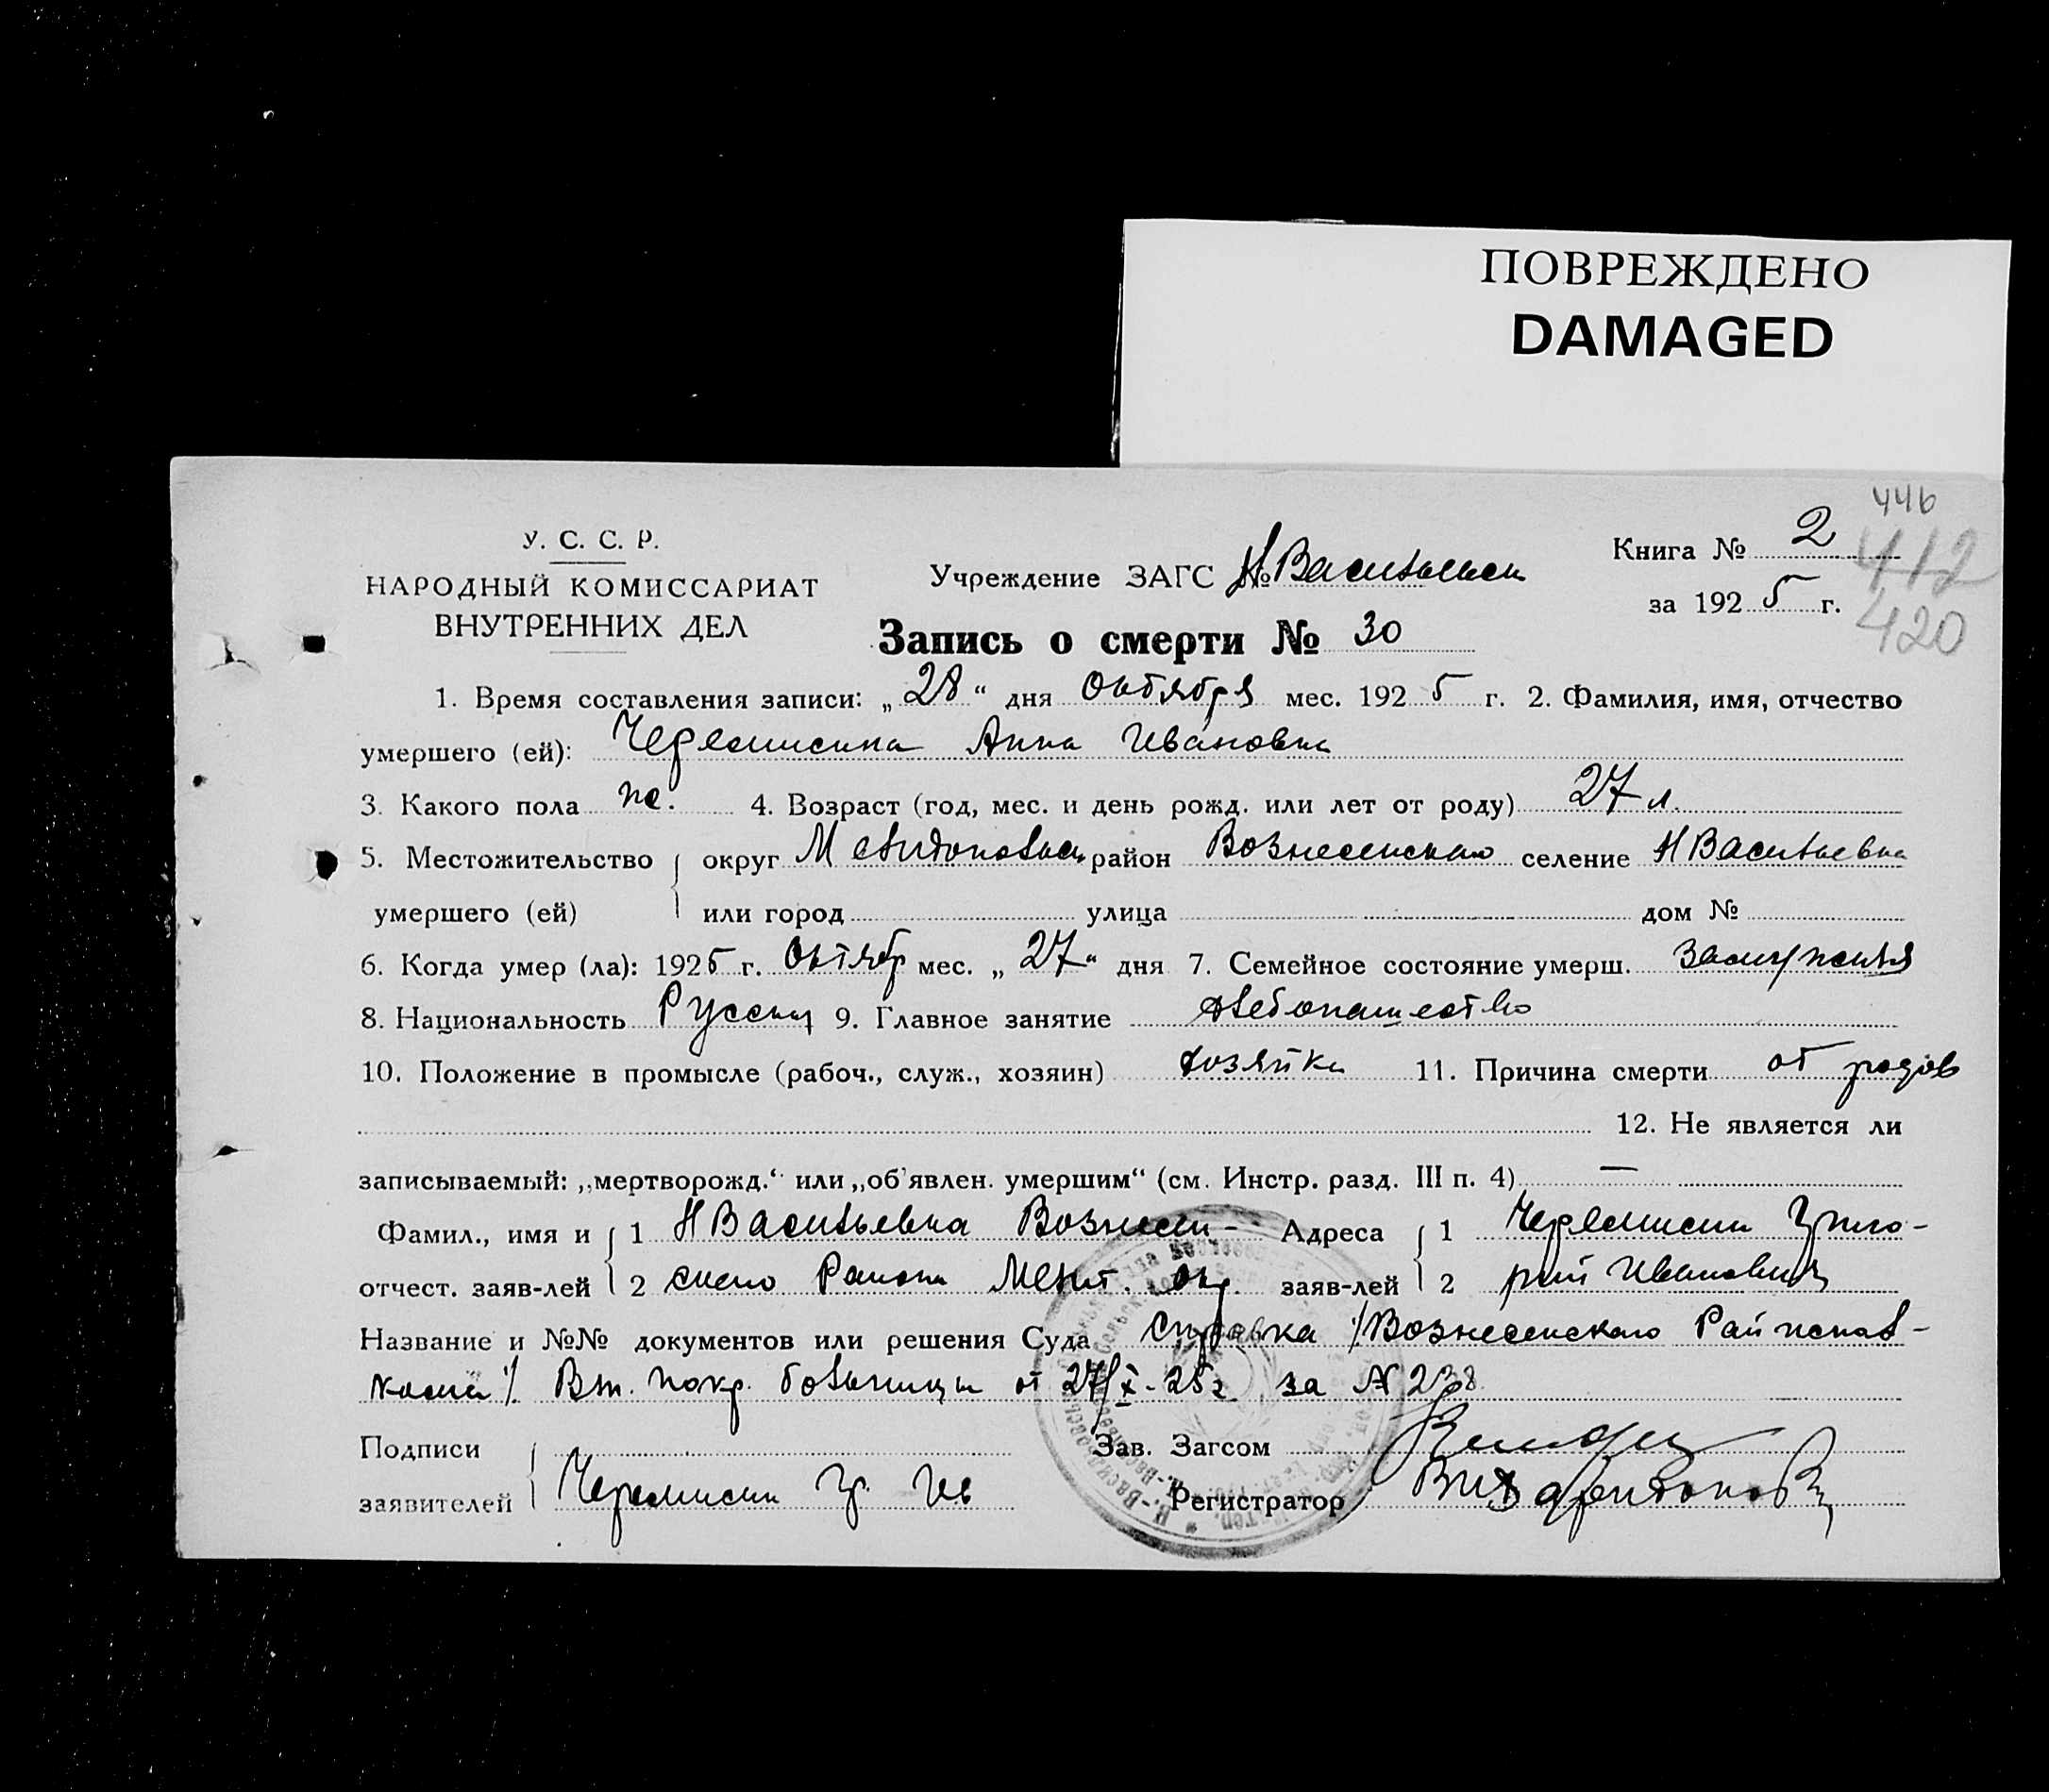 ПОВРЕЖДЕНО
DAMAGED
446
412
420
У. С. С. Р.
НАРОДНЫЙ КОМИССАРИАТ
ВНУТРЕННИХ ДЕЛ
Учреждение ЗАГС № Н Васильевск
Книга № 2
за 1925 г.
Запись о смерти № 30
1. Время составления записи: „28“ дня Октября мес. 1925 г. 2. Фамилия, имя, отчество
умершего (ей): Черемисина Анна Ивановна
3. Какого пола же. 4. Возраст (год, мес. и день рожд. или лет от роду) 27 л.
5. Местожительство округ Мелитопольск район Вознесенского селение Н Васильевка
умершего (ей) или город улица дом №
6. Когда умер (ла): 1925 г. Октябр мес. „27“ дня 7. Семейное состояние умерш. замужняя
8. Национальность Русская 9. Главное занятие хлебопашество
10. Положение в промысле (рабоч., служ., хозяин) хозяйка 11. Причина смерти от родов
12. Не является ли
записываемый: „мертворожд.“ или „об'явлен. умершим“ (см. Инстр. разд. III п. 4) —
Фамил., имя и 1 Н Васильевка Вознесен- Адреса 1 Черемисин Григо-
отчест. заяв-лей 2 ского Района Мелит. окр. заяв-лей 2 рий Иванович
Название и №№ документов или решения Суда Справка /Вознесенского Райиспол-
кома/ Вт. покр. больницы от 27/X-25 г за № 238
Подписи Зав. Загсом
заявителей Черемисин Гр. Ив Регистратор